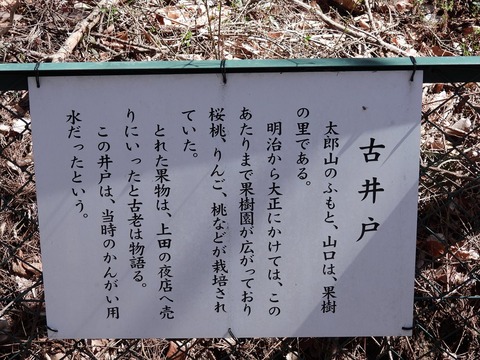 古井戸
太郎山のふもと、山口は、果樹
の里である。
明治から大正にかけては、この
あたりまで果樹園が広がっており
桜桃、りんご、桃などが栽培され
ていた。
とれた果物は、上田の夜店へ売
りにいったと古老は物語る。
この井戸は、当時のかんがい用
水だったという。